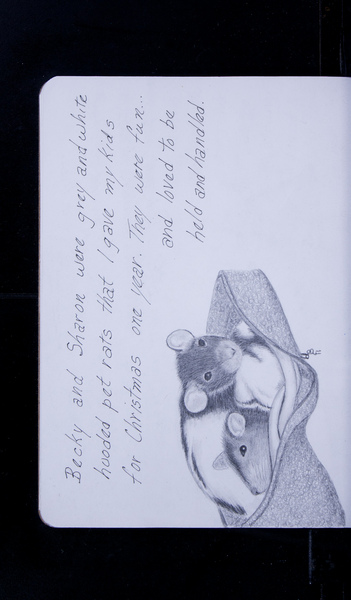 Becky and Sharon were grey and white
hooded pet rats that I gave my kids
for Christmas one year. They were fun...
and loved to be
held and handled.